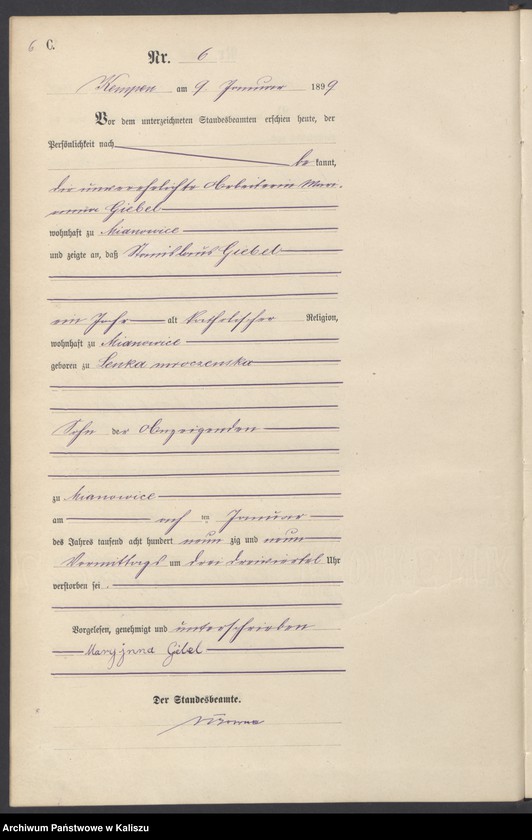 6 C.
Nr. 6
Kempen am 9 Januar 1899
Vor dem unterzeichneten Standesbeamten erschien heute, der
Persönlichkeit nach
be kannt,
die unverehelichte Arbeiterin Mari-
anna Giebel
wohnhaft zu Mianowice
und zeigte an, daß Stanislaus Giebel
ein Jahr alt katholischer Religion,
wohnhaft zu Mianowice
geboren zu Lenka mroczenska
Sohn der Anzeigenden
zu Mianowice
am acht ten Januar
des Jahres tausend acht hundert neun zig und neun
Vormittags um drei dreiviertel Uhr
verstorben sei.
Vorgelesen, genehmigt und unterschrieben
Maryjnna Gibel
Der Standesbeamte.
Archiwum Państwowe w Kaliszu